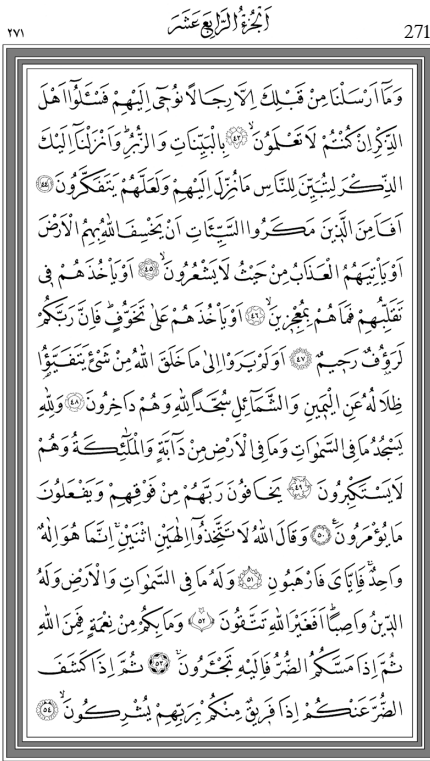 اَلْجُزْءُ الرَّابِعَ عَشَرَ
٢٧١ 271
وَمَٓا اَرْسَلْنَا مِنْ قَبْلِكَ اِلَّا رِجَالًا نُوحٓي اِلَيْهِمْ فَسْـَٔلُٓوا اَهْلَ
الذِّكْرِ اِنْ كُنْتُمْ لَا تَعْلَمُونَۙ ﴿٤٣﴾ بِالْبَيِّنَاتِ وَالزُّبُرِۜ وَاَنْزَلْنَٓا اِلَيْكَ
الذِّكْرَ لِتُبَيِّنَ لِلنَّاسِ مَا نُزِّلَ اِلَيْهِمْ وَلَعَلَّهُمْ يَتَفَكَّرُونَ ﴿٤٤﴾
اَفَاَمِنَ الَّذ۪ينَ مَكَرُوا السَّيِّـَٔاتِ اَنْ يَخْسِفَ اللّٰهُ بِهِمُ الْاَرْضَ
اَوْ يَأْتِيَهُمُ الْعَذَابُ مِنْ حَيْثُ لَا يَشْعُرُونَۙ ﴿٤٥﴾ اَوْ يَأْخُذَهُمْ ف۪ي
تَقَلُّبِهِمْ فَمَا هُمْ بِمُعْجِز۪ينَۙ ﴿٤٦﴾ اَوْ يَأْخُذَهُمْ عَلٰى تَخَوُّفٍۜ فَاِنَّ رَبَّكُمْ
لَرَؤُ۫فٌ رَح۪يمٌ ﴿٤٧﴾ اَوَلَمْ يَرَوْا اِلٰى مَا خَلَقَ اللّٰهُ مِنْ شَيْءٍ يَتَفَيَّؤُ۬ا
ظِلَالُهُ عَنِ الْيَم۪ينِ وَالشَّمَٓائِلِ سُجَّدًا لِلّٰهِ وَهُمْ دَاخِرُونَ ﴿٤٨﴾ وَلِلّٰهِ
يَسْجُدُ مَا فِي السَّمٰوَاتِ وَمَا فِي الْاَرْضِ مِنْ دَٓابَّةٍ وَالْمَلٰٓئِكَةُ وَهُمْ
لَا يَسْتَكْبِرُونَ ﴿٤٩﴾ يَخَافُونَ رَبَّهُمْ مِنْ فَوْقِهِمْ وَيَفْعَلُونَ
مَا يُؤْمَرُونَ۟ ﴿٥٠﴾ وَقَالَ اللّٰهُ لَا تَتَّخِذُٓوا اِلٰهَيْنِ اثْنَيْنِۚ اِنَّمَا هُوَ اِلٰهٌ
وَاحِدٌۚ فَاِيَّايَ فَارْهَبُونِ ﴿٥١﴾ وَلَهُ مَا فِي السَّمٰوَاتِ وَالْاَرْضِ وَلَهُ
الدّ۪ينُ وَاصِبًاۜ اَفَغَيْرَ اللّٰهِ تَتَّقُونَ ﴿٥٢﴾ وَمَا بِكُمْ مِنْ نِعْمَةٍ فَمِنَ اللّٰهِ
ثُمَّ اِذَا مَسَّكُمُ الضُّرُّ فَاِلَيْهِ تَجْـَٔرُونَۚ ﴿٥٣﴾ ثُمَّ اِذَا كَشَفَ
الضُّرَّ عَنْكُمْ اِذَا فَر۪يقٌ مِنْكُمْ بِرَبِّهِمْ يُشْرِكُونَۙ ﴿٥٤﴾